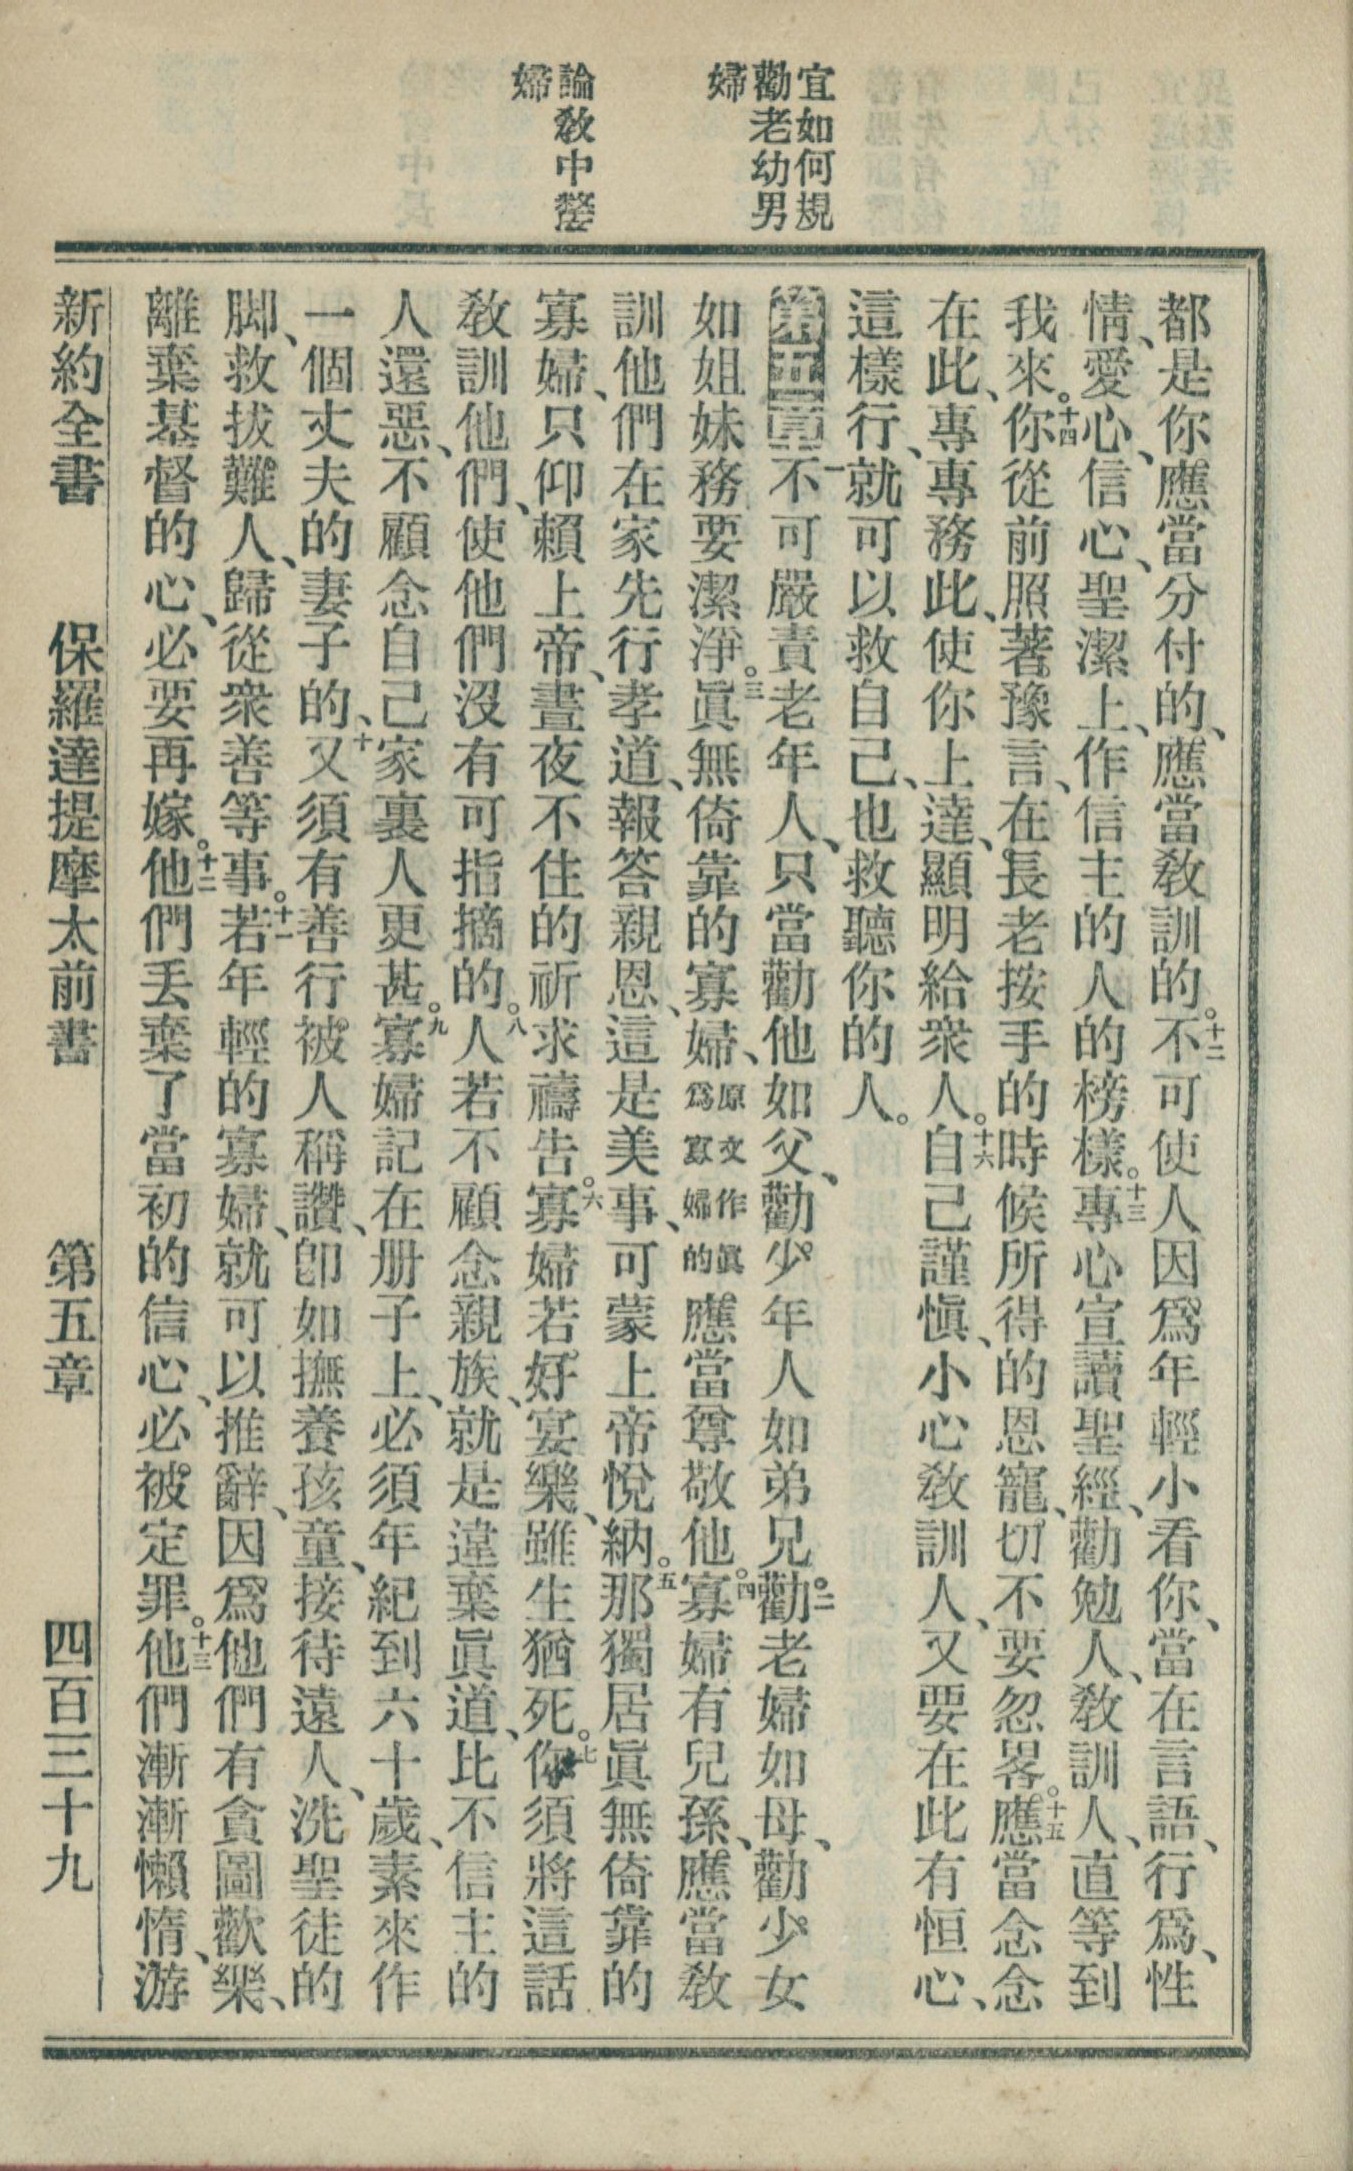 宜如何規
勸老幼男
婦
論敎中嫠
婦
都是你應當分付的、應當敎訓的。十二不可使人因爲年輕小看你、當在言語、行爲、性
情、愛心、信心、聖潔上、作信主的人的榜樣。十三專心宣讀聖經、勸勉人、敎訓人、直等到
我來。十四你從前照著豫言、在長老按手的時候所得的恩寵、切不要忽畧。十五應當念念
在此、專專務此、使你上達、顯明給衆人。十六自己謹愼、小心敎訓人、又要在此有恒心、
這樣行、就可以救自己、也救聽你的人。
第五章一不可嚴責老年人、只當勸他如父、勸少年人如弟兄。二勸老婦如母、勸少女
如姐妹務要潔淨。三眞無倚靠的寡婦、原文作眞爲寡婦的應當尊敬他。四寡婦有兒孫、應當敎
訓他們在家先行孝道、報答親恩、這是美事、可蒙上帝悅納。五那獨居眞無倚靠的
寡婦、只仰賴上帝、晝夜不住的祈求禱告。六寡婦若好宴樂、雖生猶死。七你須將這話
敎訓他們、使他們沒有可指摘的。八人若不顧念親族、就是違棄眞道、比不信主的
人還惡、不顧念自己家裏人更甚。九寡婦記在册子上、必須年紀到六十歲、素來作
一個丈夫的妻子的、十又須有善行被人稱讚、卽如撫養孩童、接待遠人、洗聖徒的
脚、救拔難人、歸從衆善等事。十一若年輕的寡婦、就可以推辭、因爲他們有貪圖歡樂、
離棄基督的心、必要再嫁。十二他們丟棄了當初的信心、必被定罪。十三他們漸漸懶惰、游
新約全書 保羅達提摩太前書 第五章 四百三十九